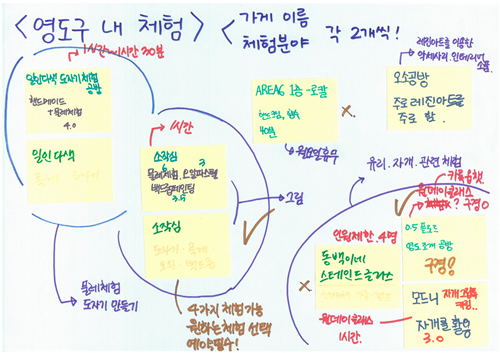 <영도구 내 체험>
<가게 이름
체험분야 각 2개씩!
1시간~1시간 30분
일인다색 도자기체험
공방
핸드메이드
+물레체험
4.0
일인 다색
물레체험
도자기 만들기
1시간
소작심
물레체험, 오일파스텔
핸드페인팅
3.5
소작심
4가지 체험 가능
원하는 체험 선택
예약필수!
그림
AREA6 1층-로칼
40분
월요일휴무
x
레진아트를 이용한
악세사리. 인테리어
소품
오소공방
주로 레진아트를
주로 함.
유리. 자개. 관련 체험
키움음챗.
원데이클래스
체험X? 구경O
0.5 플로드
영도조개 공방
구경!
인원제한. 4명
동백이네
스테인드글라스
x
원데이클래스
1시간.
모드니
자개를 활용
3.0